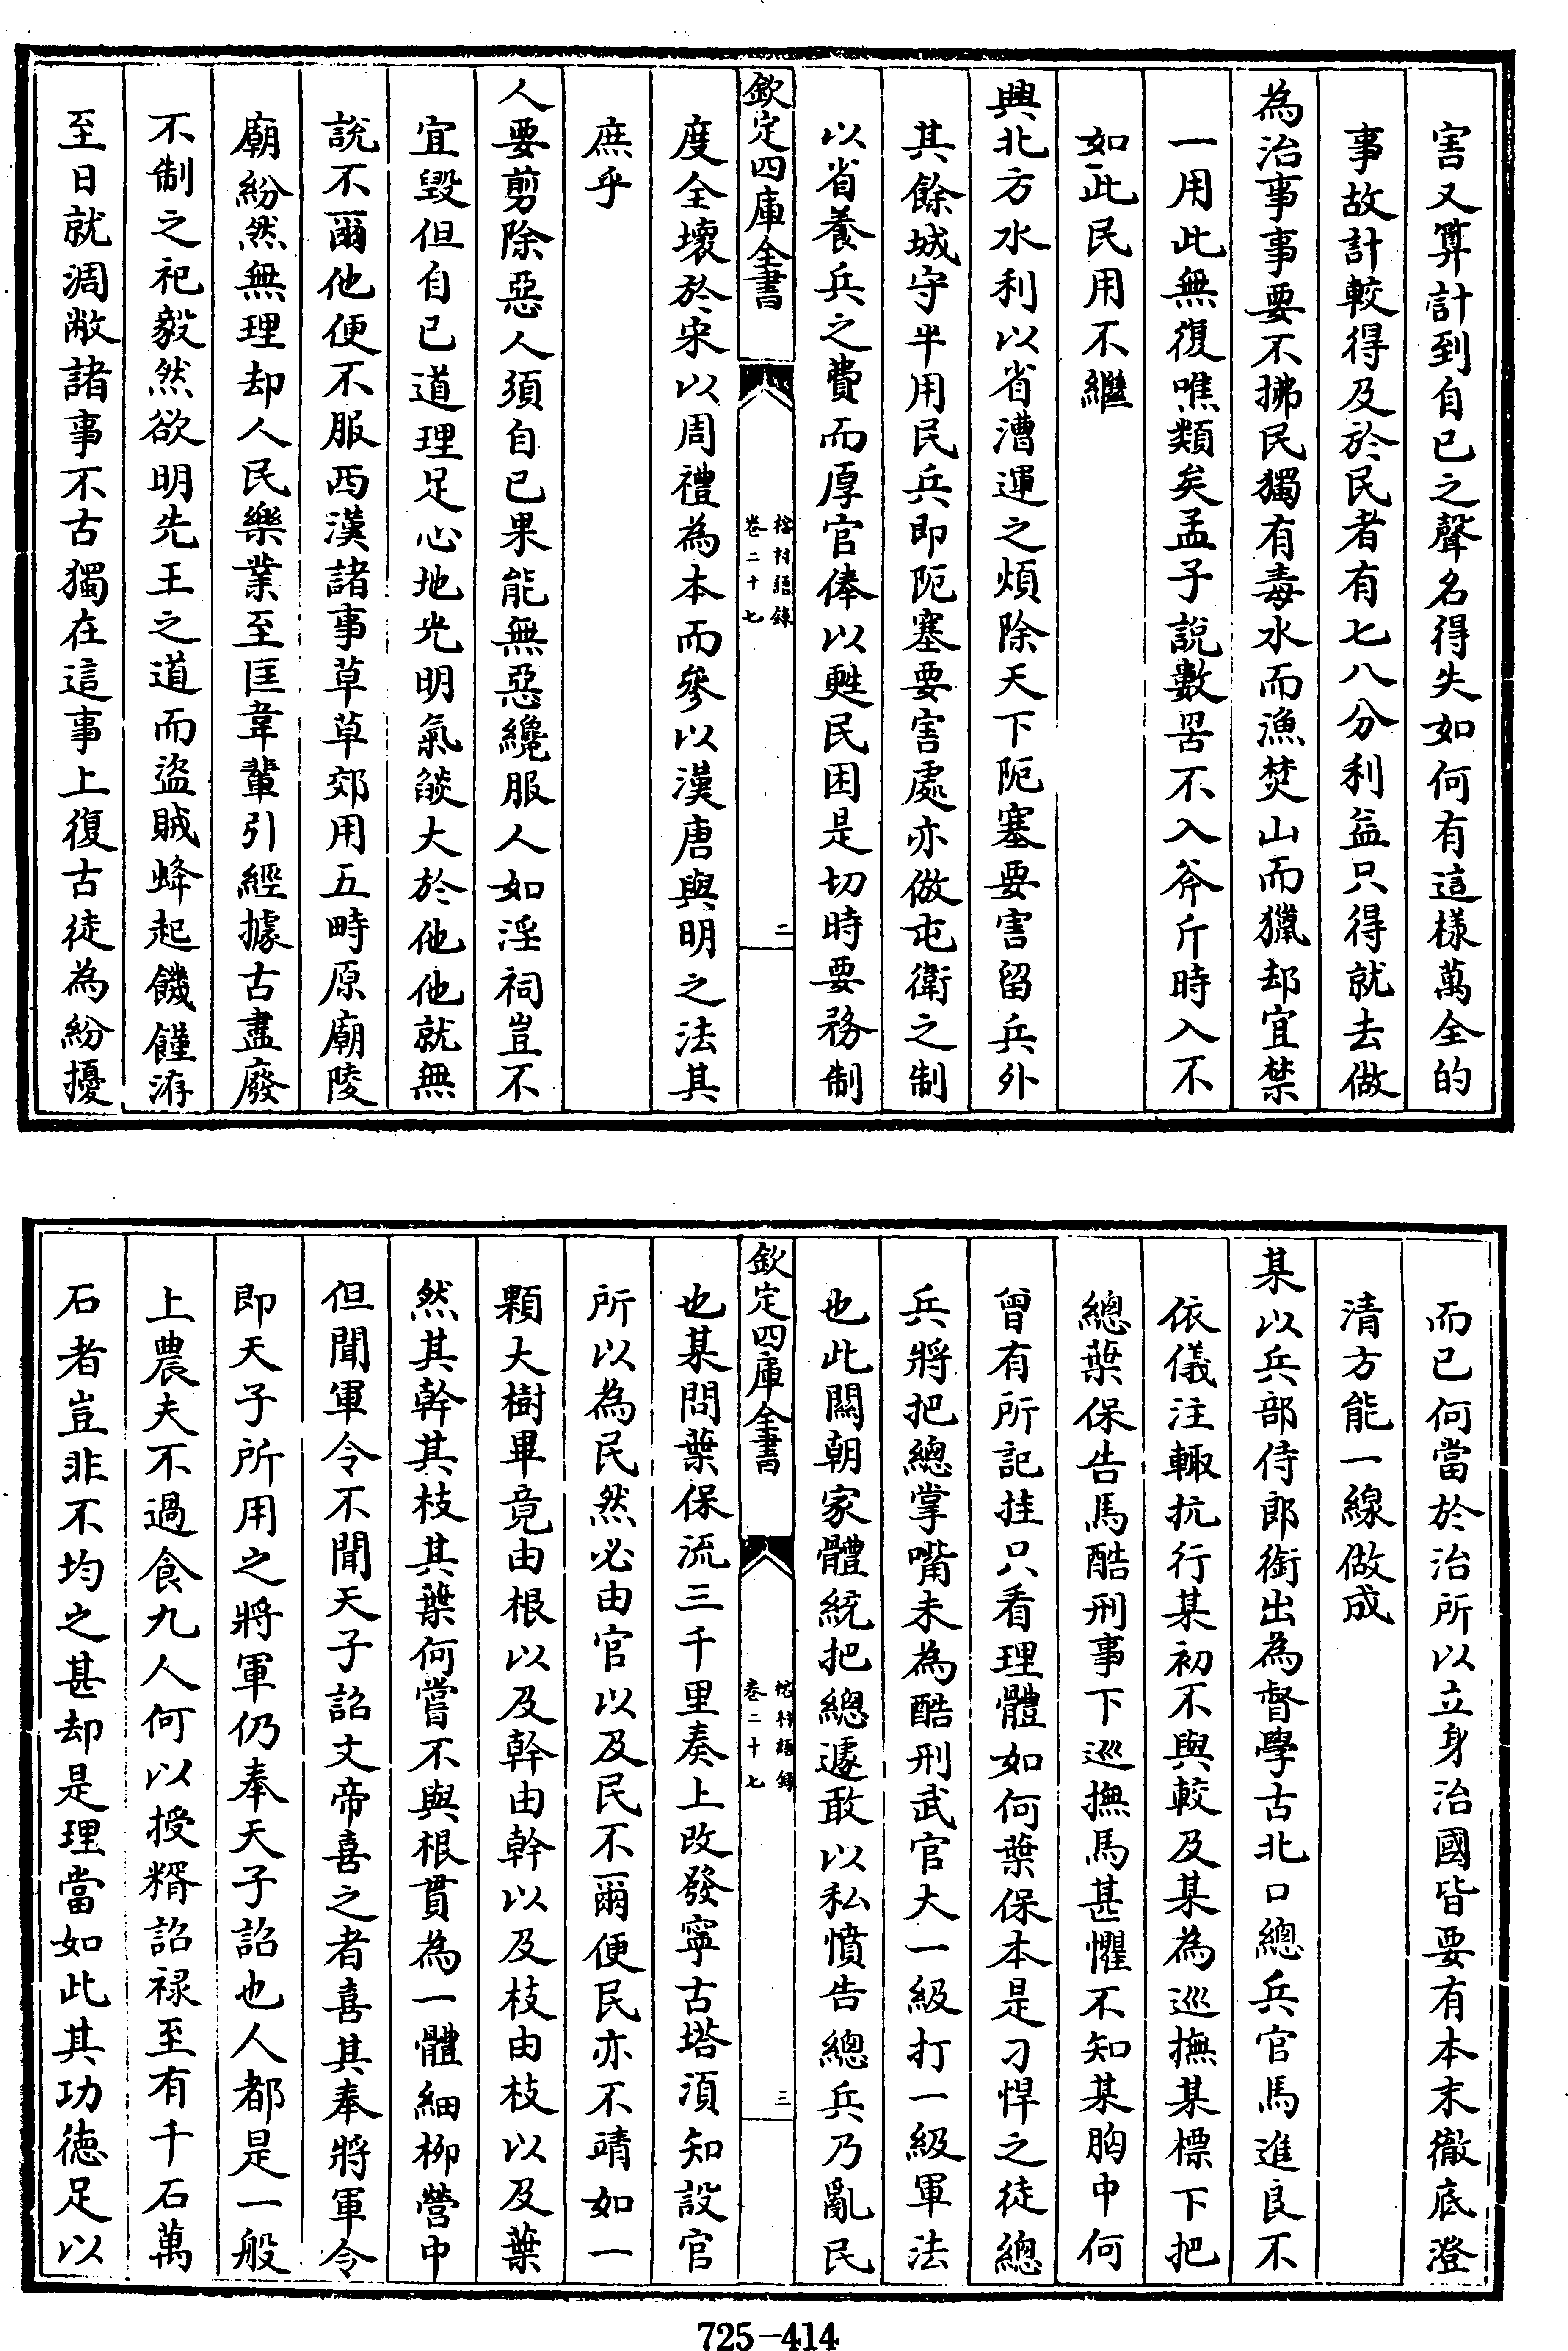 害又算計到自已之聲名得失如何有這樣萬全的
事故計較得及於民者有七八分利益只得就去做
為治事事要不拂民獨有毒水而漁焚山而獵却宜禁
一用此無復噍類矣孟子說數罟不入斧斤時入不
如此民用不繼
興北方水利以省漕運之煩除天下阨塞要害留兵外
其餘城守半用民兵即阨塞要害處亦倣屯衛之制
以省養兵之費而厚官俸以甦民困是切時要務制
欽定四庫全書
榕村語錄
卷二十七
二
度全壞於宋以周禮為本而參以漢唐與明之法其
庶乎
人要剪除惡人須自已果能無惡纔服人如淫祠豈不
宜毀但自已道理足心地光明氣燄大於他他就無
說不爾他便不服西漢諸事草草郊用五畤原廟陵
廟紛然無理却人民樂業至匡韋輩引經據古盡廢
不制之祀毅然欲明先王之道而盜賊蜂起饑饉洊
至日就凋敝諸事不古獨在這事上復古徒為紛擾
而已何當於治所以立身治國皆要有本末徹底澄
清方能一線做成
某以兵部侍郎銜出為督學古北口總兵官馬進良不
依儀注輒抗行某初不與較及某為巡撫某標下把
總葉保告馬酷刑事下巡撫馬甚懼不知某胸中何
曾有所記挂只看理體如何葉保本是刁悍之徒總
兵將把總掌嘴未為酷刑武官大一級打一級軍法
也此關朝家體統把總遽敢以私憤告總兵乃亂民
欽定四庫全書
榕村語錄
卷二十七
三
也某問葉保流三千里奏上改發寧古塔須知設官
所以為民然必由官以及民不爾便民亦不靖如一
顆大樹畢竟由根以及幹由幹以及枝由枝以及葉
然其幹其枝其葉何嘗不與根貫為一體細柳營中
但聞軍令不聞天子詔文帝喜之者喜其奉將軍令
即天子所用之將軍仍奉天子詔也人都是一般
上農夫不過食九人何以授糈詔祿至有千石萬
石者豈非不均之甚却是理當如此其功德足以
725-414